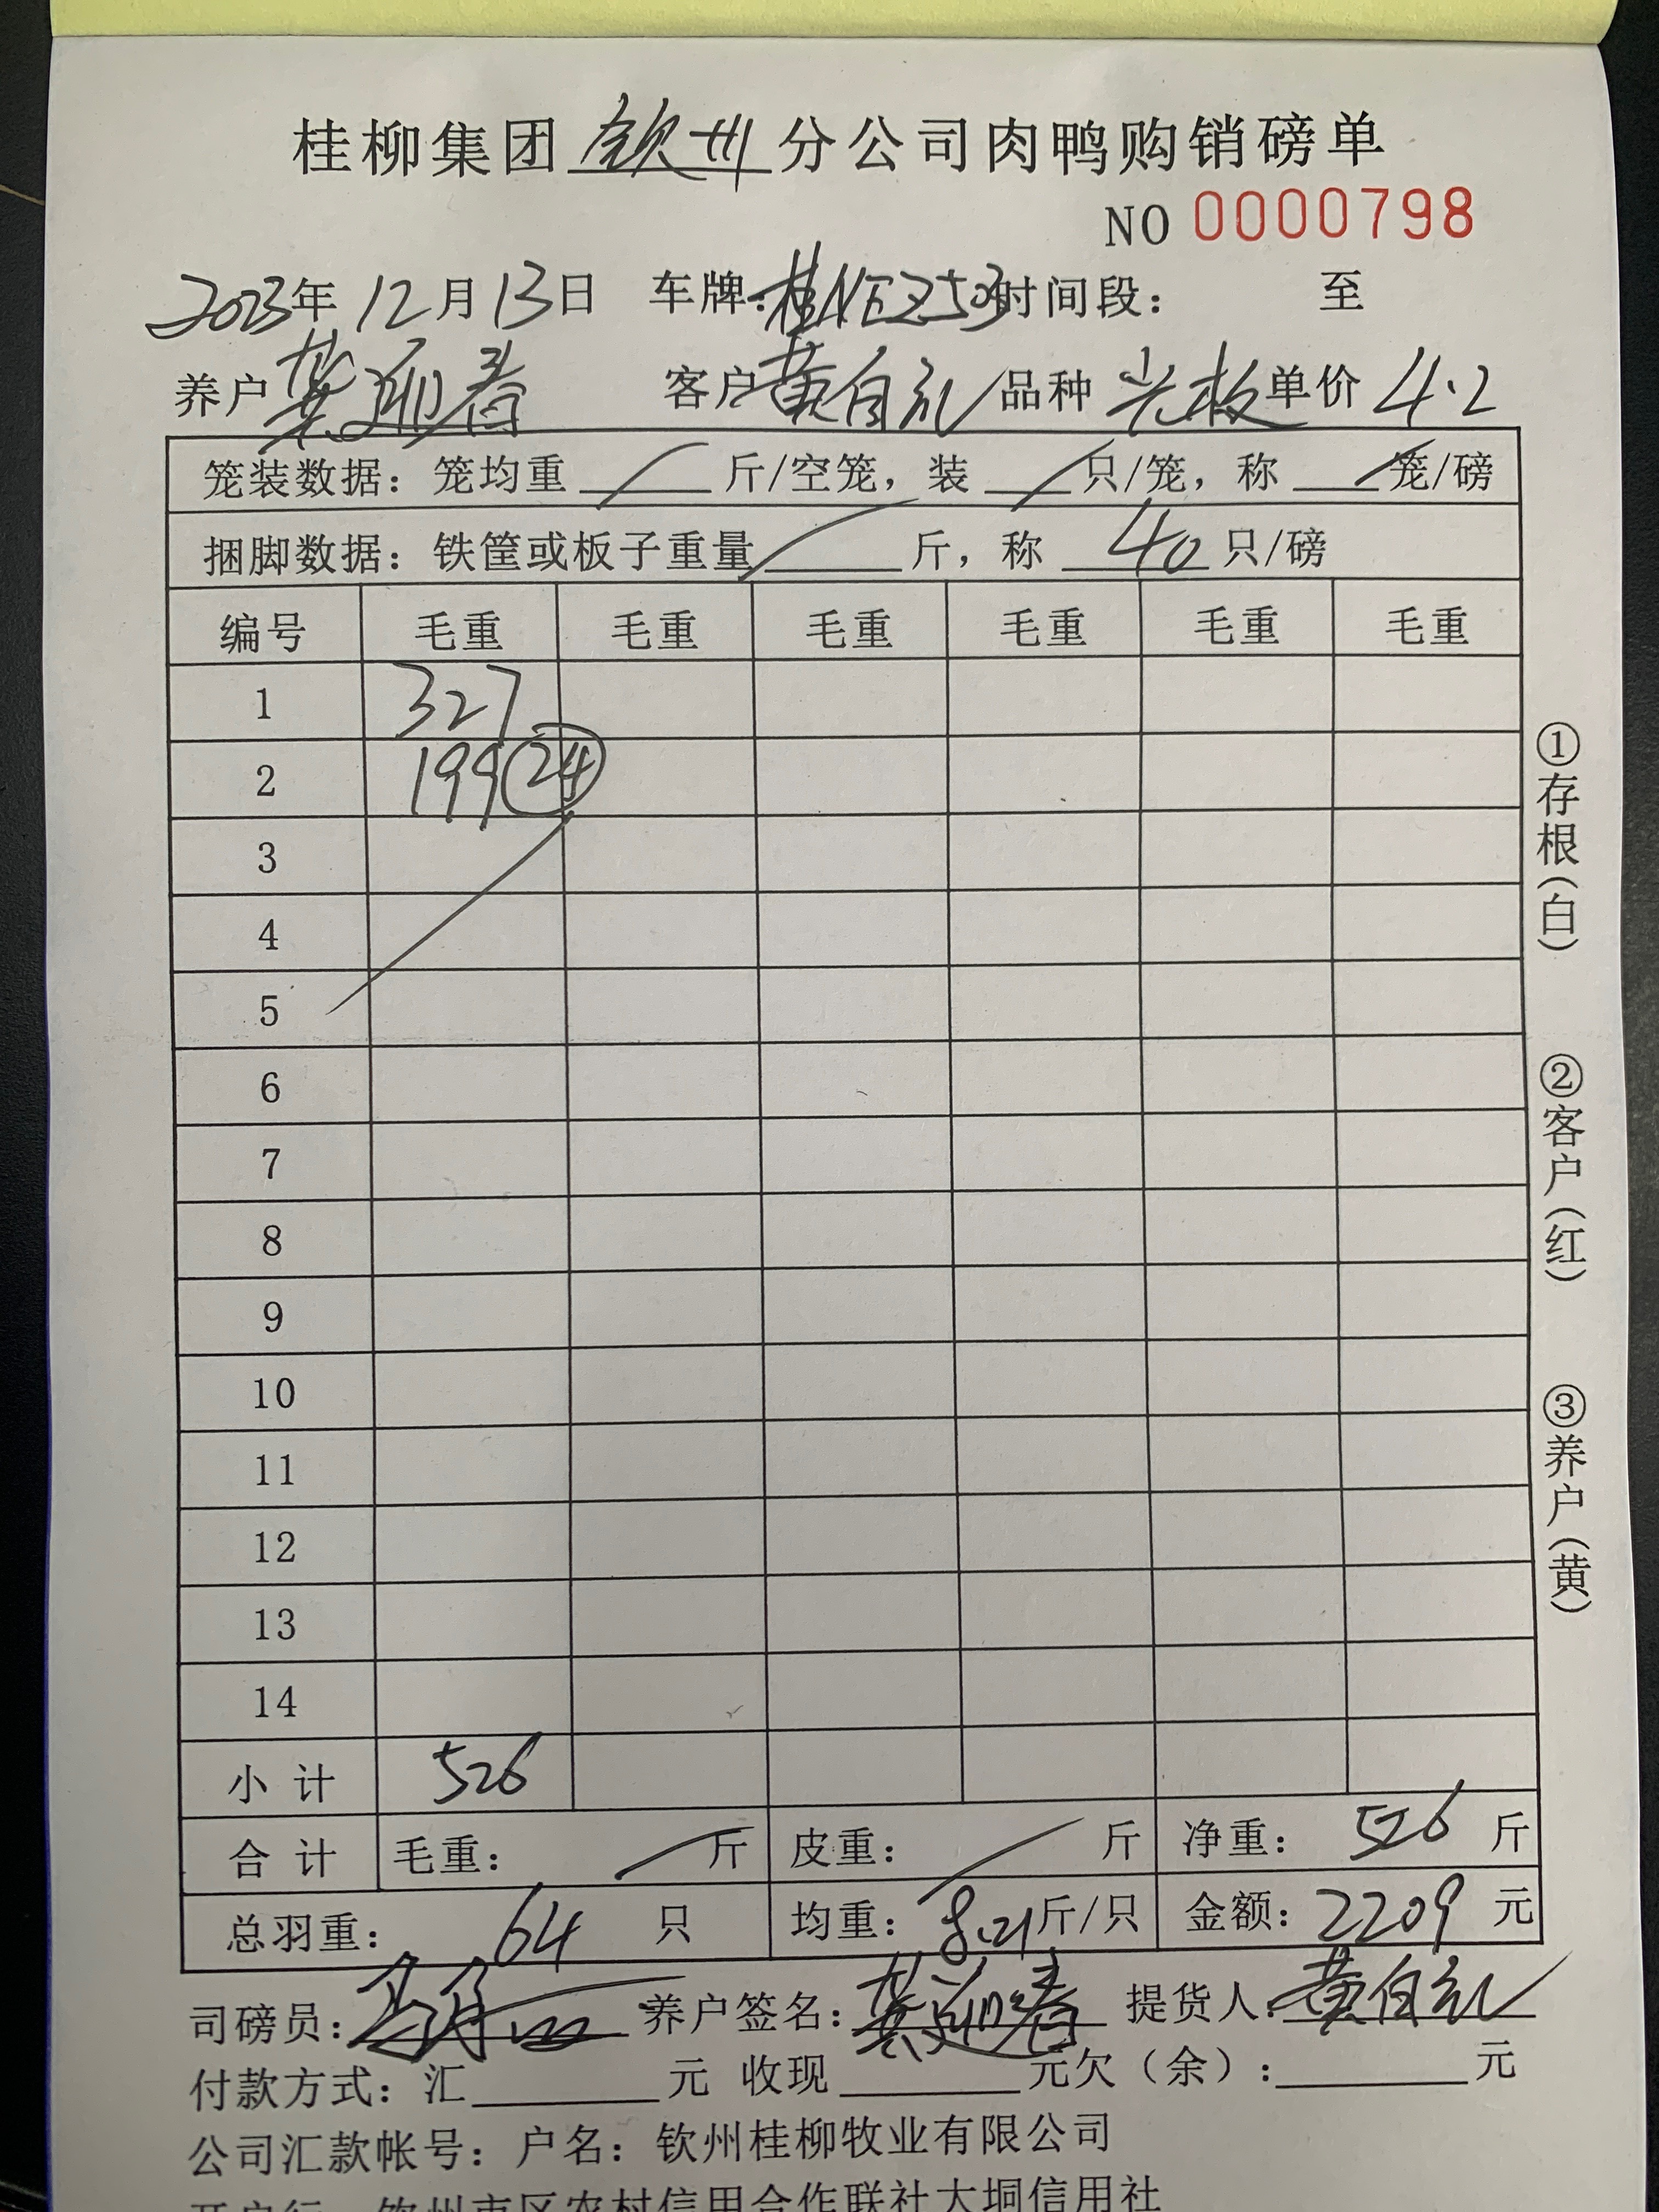 桂柳集团 钦州 分公司肉鸭购销磅单
NO 0000798
2023年 12月 13日 车牌:桂NEZ503 时间段: 至
养户 龚迎春 客户 黄自礼 品种 光板 单价 4.2
笼装数据: 笼均重 斤/空笼, 装 只/笼, 称 笼/磅
捆脚数据: 铁筐或板子重量 斤, 称 40 只/磅
编号 毛重 毛重 毛重 毛重 毛重 毛重
1 327
2 199 24
3
4
5
6
7
8
9
10
11
12
13
14
小计 526
合计 毛重: 斤 皮重: 斤 净重: 526 斤
总羽重: 64 只 均重: 8.21 斤/只 金额: 2209 元
司磅员: 养户签名: 龚迎春 提货人: 黄自礼
付款方式: 汇 元 收现 元欠(余): 元
公司汇款帐号: 户名: 钦州桂柳牧业有限公司
开户行: 钦州市区农村信用合作联社大垌信用社
①存根(白)
②客户(红)
③养户(黄)